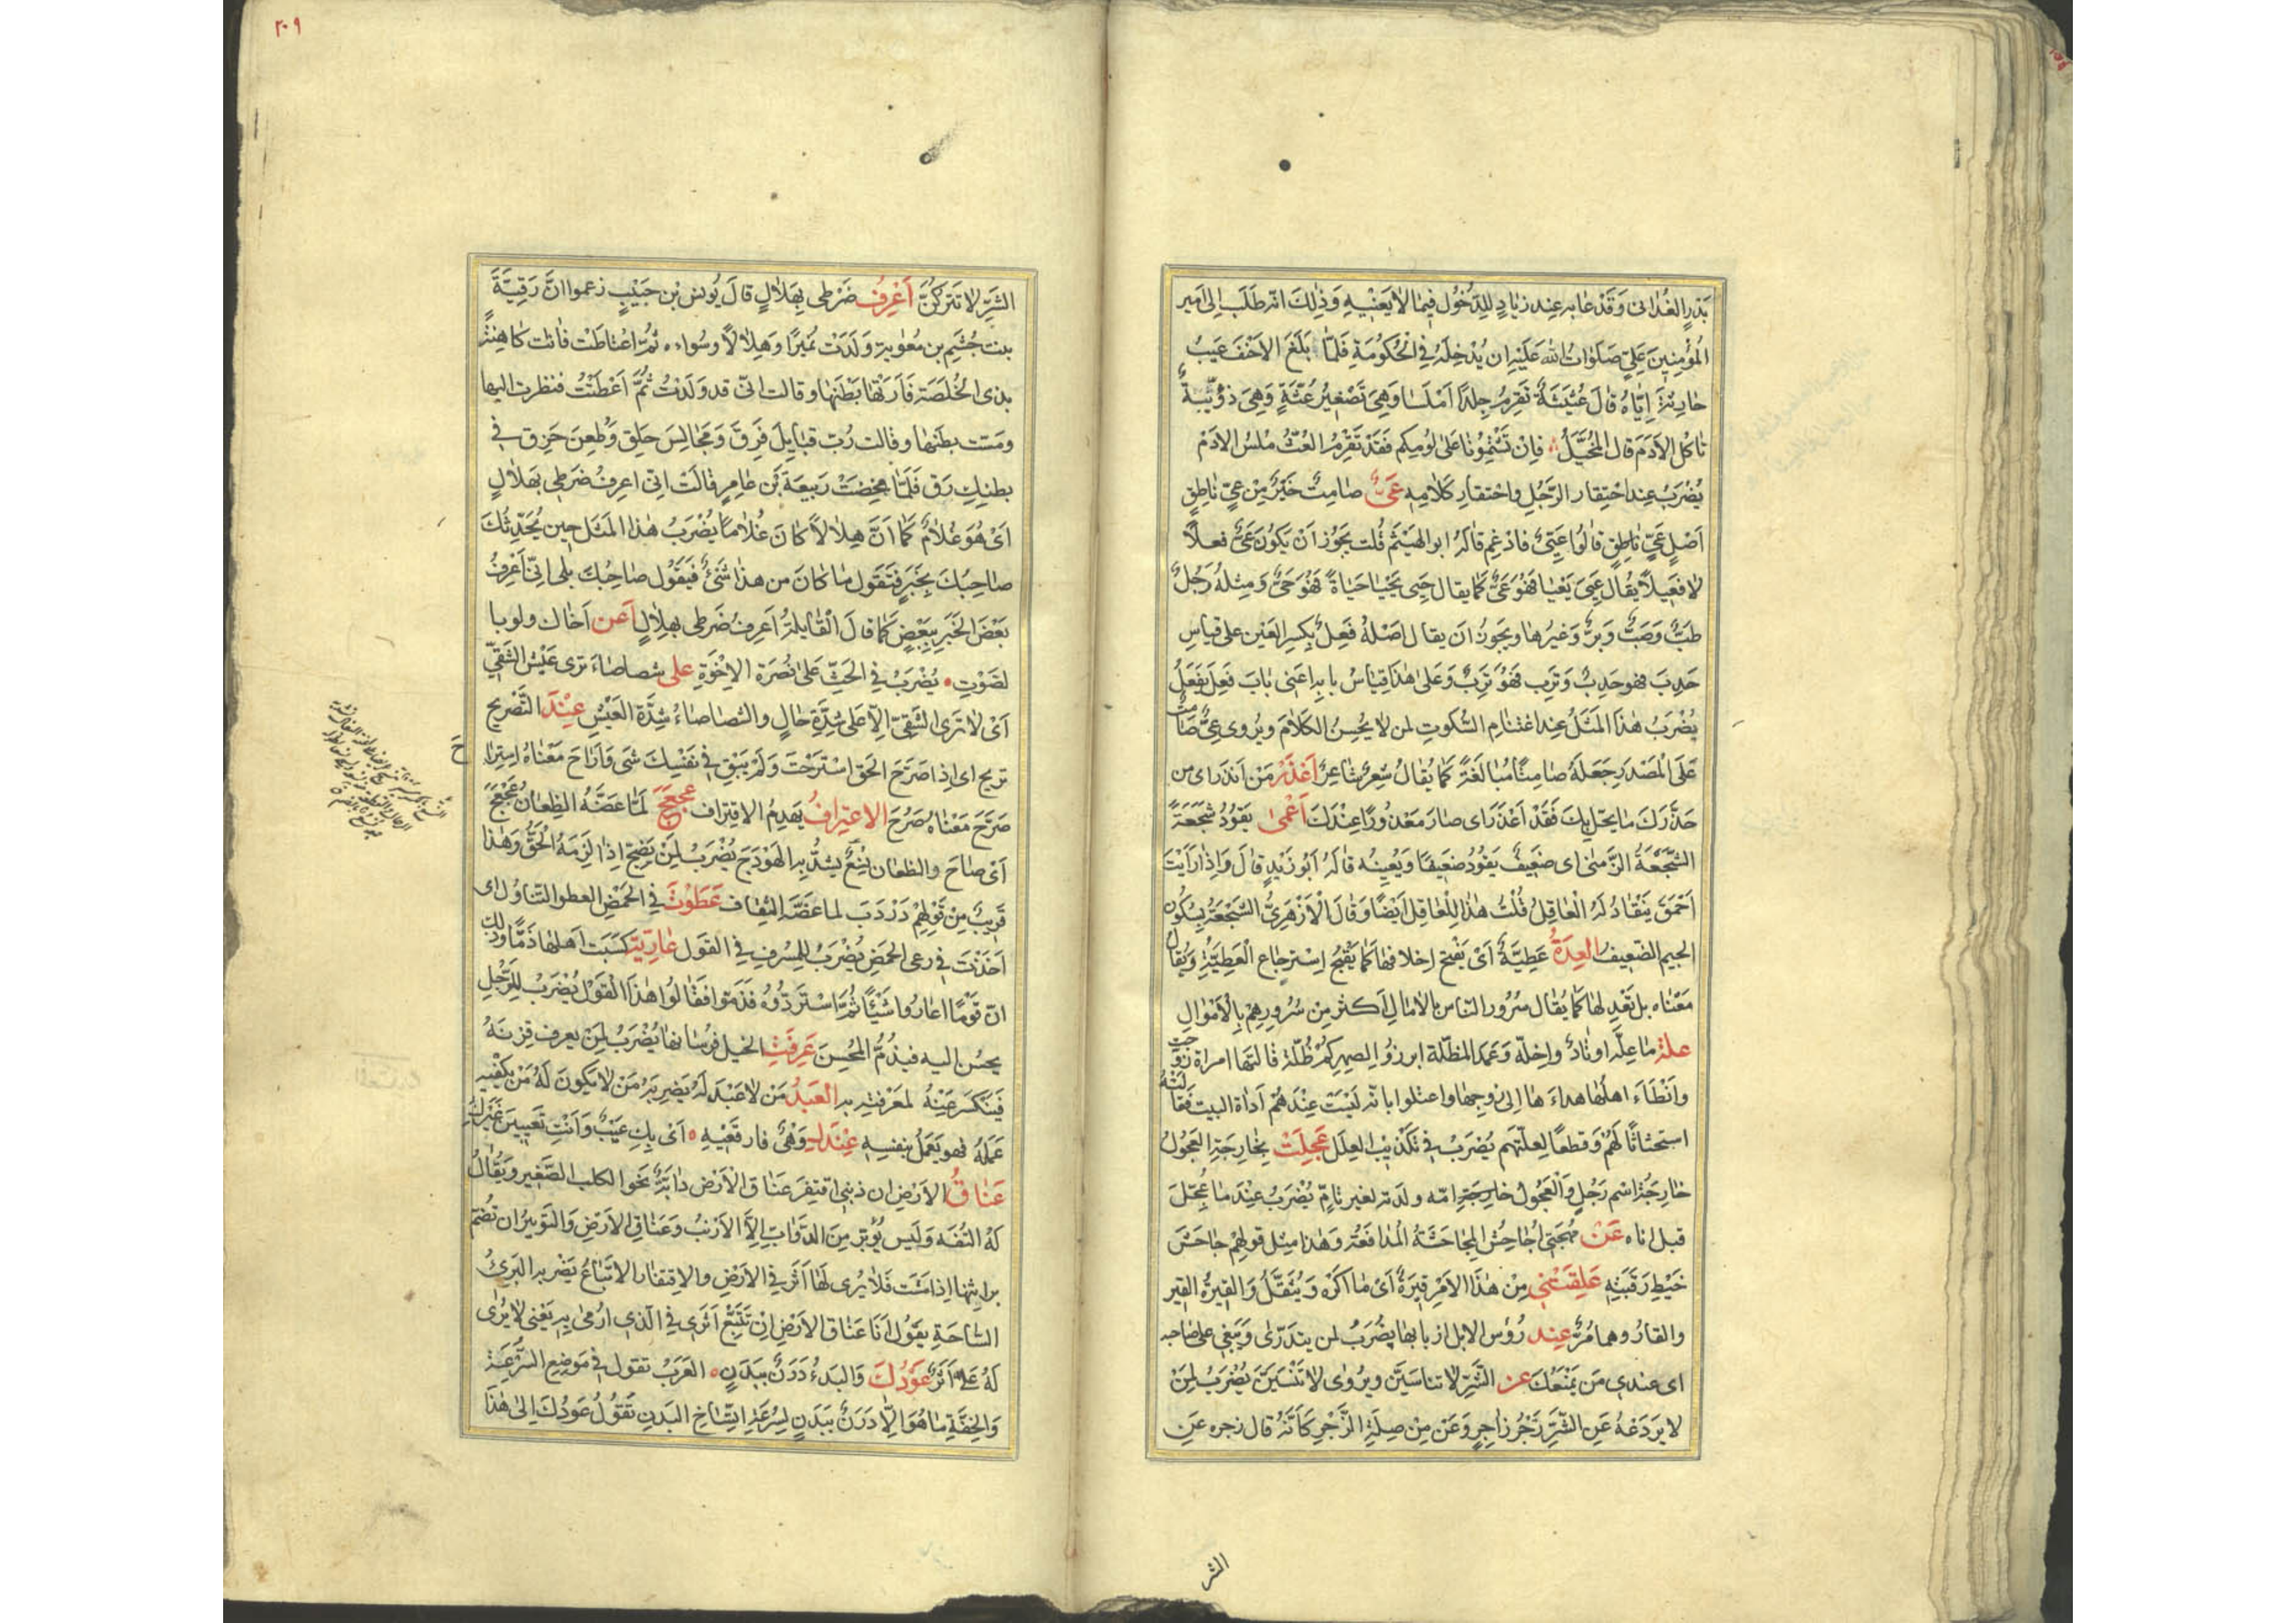 بَدْرٍ الغُدَانى وَقَدْ عَابه عِند زيَادٍ لِلدُّخُول فِيمَا لاَ يَعْنِيهِ وَذٰلِكَ انّه طَلَبَ اِلى اَمير
المُؤمِنِينَ عَلِيٍّ صَلَوَاتُ اللّٰه عَلَيْهِ ان يُدْخِلَهُ فِي الْحُكُومَةِ فَلَمَّا بَلَغَ الاَحْنَفَ عَيبُ
حَارِثَةَ اِيَّاهُ قالَ عُثَيْثَةٌ تَقرِمُ جِلدًا اَمْلَسَا وَهِيَ تَصْغِيرُ عُثَّةٍ وَهِيَ دُوَيْبَّةٌ
تَاكُل الاَدَمَ قال المُخَبَّلُ فاِنْ تَشْتِمُونا عَلىٰ لُومِكم فَقَدْ تَقْرِمُ العُثُّ مُلسَ الاَدَمْ
يُضْرَبُ عِنداحْتِقار الرَّجُلِ واحْتقارِ كَلاَمِهِ عَىٌّ صَامِتٌ خَيْرٌ مِنْ عىٍّ نَاطِقٍ
اَصْل عَىٍّ نَاطِقٍ قالُوا عَيِىٌّ فادْغِم قالَهُ ابو الهَيْثَم قُلت يَجُوْز اَنْ يَكوُنَ عَىٌّ فَعلاً
لاَ فَعِيلاً يُقَال عَيِىَ يَعْيَا فَهُوَ عَىٌّ كَمَا يقال حَيِىَ يَحْيَا حَيَاةً فَهُوَ حَىٌّ وَمِثلهُ رَجُلٌ
طَبٌّ وَصَبٌّ وَبَرٌّ وَغَيرُهَا ويَجُوزُ اَنَ يقال اَصْلهُ فَعِلٌ بِكَسِر العَيْن على قياسِ
حَدِبَ فهو حَدِبٌ وَتَرِب فَهُوَ تَرِبٌ وَعَلىٰ هٰذا قِيَاسُ بابه اَعنى بَابَ فَعِلَ يَفعَلُ
يُضْرَبُ هٰذا المَثَلُ عِند اغتنام السُّكوتِ لمن لاَ يُحْسِنُ الكلاَمَ ويُروى عِىٌّ صَامت
عَلَى الْمَصْدَرِ جَعَلَهُ صَامِتًا مُبَالَغَةً كَمَا يُقَالُ شِعِرٌ شَاعِرٌ اَعْذَرَ مَنْ اَنذَرَ اى من
حَذَّرَكَ مَا يحَلّ بِكَ فَقَدْ اَعْذَرَ اى صَارَ مَعْذوُرًا عِنْدَكَ اَعْمىٰ يَقوُدُ شَجْعَةً
الشَّجْعَةُ الزَّمْنى اى ضَعِيفٌ يَقوُدُ ضَعِيفًا وَيُعِينُه قالَهُ اَبُو زَيْدٍ قالَ وَاِذَا رَاَيْتَ
اَحْمَقَ يَنقَادُ لَهُ الْعَاقِلُ قُلْتُ هٰذا لِلْعَاقِل اَيْضًا وَقَالَ الْاَزْهَرِىُّ الشَّجْعَةُ بِسُكُون
الجيم الضّعِيف العِدَةُ عَطِيَّةٌ اَىْ يَقْبح اِخلاَفها كَمَا يَقْبُح اِسْترجَاع الْعَطِيَّةِ وَيُقالُ
مَعْنَاه بل تَعْدِ لهَا كَمَا يُقَال سُرُور النّاس بالاٰمال اَكثر مِنْ سُرُورِهِمْ بِالْاَمْوَالِ
علة مَا عِلّه اوتادٌ وَاخِلّه وَعَمَد المظلّه ابرزوُا لصِهِركمُ ظُلّه قالتهَا امراة زُوّجت
وَاَبْطَاءَ اهلُهَا هداءَهَا اِلىٰ زوجها واعتلوا بانّه لَيْسَت عِنْدَهُم اَدَاة البيت فقالتهُ
استحثاثًا لَهُمْ وَقَطعًا لعِلّتهم يُضرَبُ فِي تكذيْبِ العِلَل عَجِلَتْ بِخَارِجَةَ العَجُولُ
خَارِجَةُ اسْم رَجُلٍ وَالْعَجُولُ خارجَةِ امّه ولدَته لغير تامٍّ يُضْرَبُ عِنْدَ مَا عُجِّلَ
قبل اناه عَنْ مُهجَتى اُجَاحِشُ المجَاحَشَةُ المُدَافَعَةُ وَهٰذا مِثل قولهِمْ جَاحَشَ
خَيْطِ رَقَبَتِهِ عَلِقَتْني مِنْ هٰذا الاَمْرِ قِيَرةٌ اَىْ مَا اَكْرَه وَيُثَقَّلُ وَالقِيرةُ القِير
والقارُ وهما مُرٌّ عِند رُؤس الابل ازبابها يضُرَبُ لمن يتدرّىٰ وَيَبغِى على صَاحبه
اى عِندي مَن يَمْنَعُكَ عن الشّرِّ لا تناسَيَنَّ ويرُوٰى لا تَنْسَيَنَ يُضْرَبُ لِمَنْ
لا يردَعهُ عَنِ الشَّرِّ زَجْرُ زاجِرٍ وَعَنْ مِنْ صِلَةِ الزَّجْرِ كاَنّهُ قال زجره عَنِ
الشر
٢٠٩
الشَرِّ لاَ تَتركَنَّ اَعْرِفُ ضَرْطى بِهَلاَلٍ قالَ يُونس بْن حَبيْبٍ زعموا انَّ رَقِيَّةَ
بنت جُشَمِ بن مُعٰوية وَلَدَتْ نُمَيرًا وَهِلاَلاً وسُواءة ثُمَّ اعْتاطَتْ فاتت كاهِنةً
بذى الخُلَصَة فَاَرَتْهَا بَطْنَهَا وقالت انّى قد وَلَدْتُ ثُمَّ اَعْطَتْتُ فنظرت اليها
ومَسّت بطنهَا وقالت رُبّ قبَايِلَ فِرَقَ وَمَجَالِسَ حِلَق وَظُعِنَ حَزِق في
بطنِكِ رَق فلَمّا مخِضَتْ رَبيعَة بْن عَامِرٍ قالَتْ انّى اعرِفُ ضَرطى بهَلاَلٍ
اَىْ هُوَ غلاَمٌ كمَا اَنَّ هِلاَلاً كانَ غُلاَمًا يُضْرَبُ هٰذا المَثَل حِين يُحَدِّثُكَ
صَاحِبُكَ بِخَبرٍ فَتَقول مَا كانَ من هذا شَئٌ فيَقوُل صَاحِبُكَ بلى انّى اَعْرِفُ
بَعْضَ الخَبَرِ بِبَعْضٍ كمَا قالَ الْقَايلة اَعرِفُ ضَرطى بهلاَلٍ اَعن اَخاك ولو با
لصَوْتِ يُضْرَبُ في الحَثِّ عَلىٰ نُصْرَة الاِخْوَةِ على شصَاصَاءَ ترى عَيْش الشَّقِيِّ
اَىْ لاَ تَرَى الشَقِىّ اِلاّ عَلى شِدَّةِ حَالٍ والشصَاصَاءُ شِدَّة العَيْشِ عِنْدَ التَّصْرِيح
تريح اى اذِا صَرَّحَ الحَق اسْتَرَحْتَ وَلَمْ يَبْقَ فِي نَفْسِكَ شَى وَاَرَاحَ مَعْنَاهُ استِرا
ح
صَرَّحَ مَعْنَاه صَرُحَ الاعترافُ يَهدِمُ الاقتِراف عَجعَجَ لمَّا عَضَّهُ الظِعَانُ عَجْعَجَ
اَىْ صَاحَ والظعَان نِسْعٌ يشدُّ به الهَوْدَجَ يُضْرَبُ لِمَنْ يَضِجّ اذا لَزِمَهُ الحَقُّ وَهٰذا
قَرِيبٌ مِنْ قَوْلهِمْ دَرْدَبَ لما عَضَّهُ الثِقاف عَطَوْتَ في الحَمْض العطو التّناوُل اى
اَخَذْتَ فِي رعى الحَمضِ يُضْرَبُ للمُسْرِفِ في القول عَارِيَة كسَبَت اَهلهَا ذَمًّا وذلك
انّ قَوْمًا اعَارُوا شَيْئًا ثُمَّ اسْتَردُّوُه فذَمّوا فقالُوا هٰذَا القَوْل يُضْرَبُ للرَّجُلِ
يحسُن اليه فيذُمُّ المُحْسِنَ عَرِفَتْ الخيل فرُسَانها يُضْرَبُ لِمَنْ يعرف قِرنَهُ
فَيَنكَسر عَنْهُ لمَعرَفتهِ به العَبْدُ مَن لاَ عَبْدَ لَهُ يُضرِبه مَن لاَ يَكُونَ لَهُ مَنْ يكفيه
عَمَلهُ فهو يَعَمَلُ بنفسِهِ عِنْدَك وَهْىٌ فارقعَيْهِ اَىْ بِكِ عَيْبٌ وَاَنْتِ تَعِيبينَ غَيْركِ
عَنَاقُ الاَرْضِ ان ذنبى اقتفِرَ عَنَاق الاَرْض دَابّةٌ نحَوا لكلب الصّغِير وَيُقَالُ
لَهُ التُفَه وَلَيس يُؤَبّر مِنَ الدَّوَابِّ الاَّ الاَرْنبُ وَعَنَاق الاَرْضِ وَالتَوبِيرُ ان تضُمّ
براثِنهَا اِذا مَشَت فلاَ يُرى لهَا اَثر فِي الاَرْضِ والاِقتِفار الاتّبَاعُ يَضْربه البَرِئُ
السّاحَةِ يقوُل اَنَا عَنَاق الاَرْضِ اِنْ تُتُبِّعَ اَثَرى فِي الَّذي ارُمىٰ بِهِ يَعْنى لاَ يُرٰى
لَهُ عَلَىَّ اَثَرٌ عَوْدُكَ وَالبَدءُ دَرَنٌ بِبَدَنٍ العَرَبُ تقول في مَوضِع السُّرعَةِ
وَالخِفَّةِ مَا هُوَ الاَّ دَرَنٌ بِبَدَنٍ لِسُرعَةِ اتّسَاخِ البَدَنِ تَقُولُ عَوْدُكَ اِلىٰ هٰذا